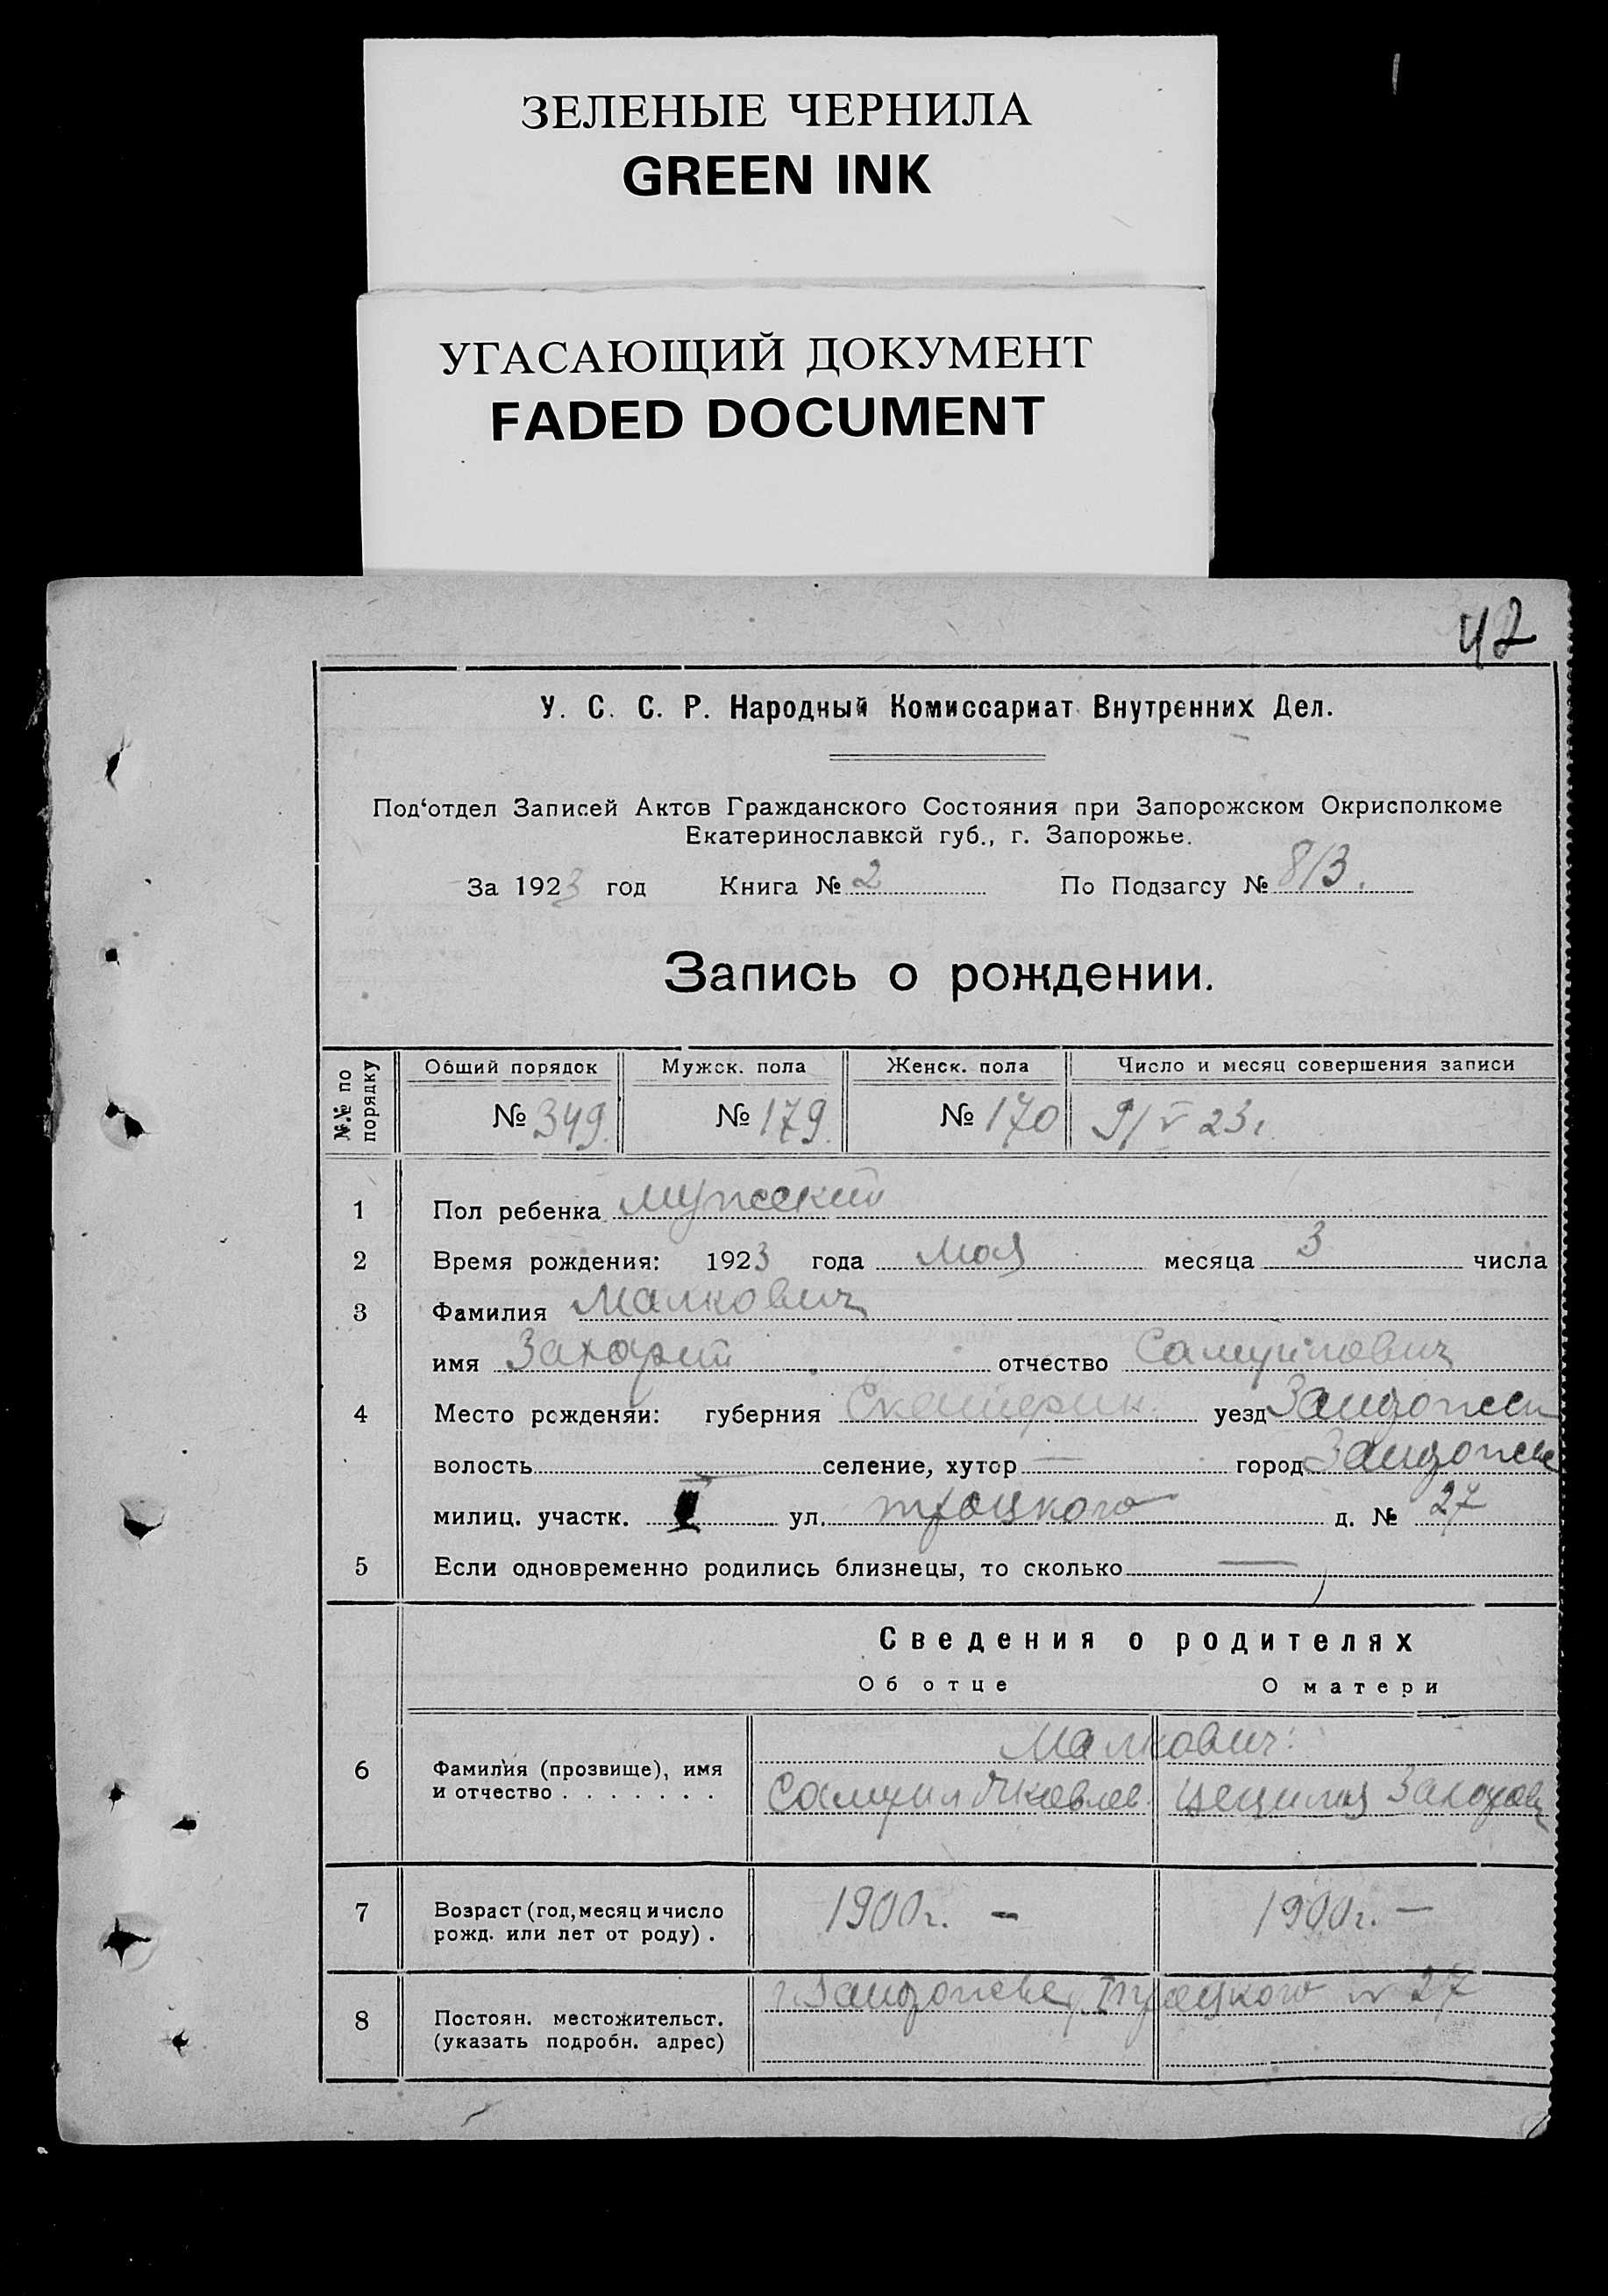 ЗЕЛЕНЫЕ ЧЕРНИЛА
GREEN INK
УГАСАЮЩИЙ ДОКУМЕНТ
FADED DOCUMENT
42
У. С. С. Р. Народный Комиссариат Внутренних Дел.
Под‘отдел Записей Актов Гражданского Состояния при Запорожском Окрисполкоме
Екатеринославкой губ., г. Запорожье.
За 1923 год Книга № 2 По Подзагсу № 813.
Запись о рождении.
№№ по порядку Общий порядок Мужск. пола Женск. пола Число и месяц совершения записи
№ 349. № 179. № 170 9/V 23г.
1 Пол ребенка мужский
2 Время рождения: 1923 года мая месяца 3 числа
3 Фамилия Малкович
имя Захарий отчество Самуилович
4 Место рожденяи: губерния Екатерин. уезд Запорожск
волость селение, хутор — город Запорожье
милиц. участк. II ул. Троцкого д. № 27
5 Если одновременно родились близнецы, то сколько —
Сведения о родителях
Об отце О матери
Малкович
6 Фамилия (прозвище), имя
и отчество . . . . . . . Самуил Яковлев. Цецилия Захаров
7 Возраст (год, месяц и число 1900г. — 1900г. —
рожд. или лет от роду) .
г. Запорожье, Троцкого № 27
8 Постоян. местожительст.
(указать подробн. адрес)